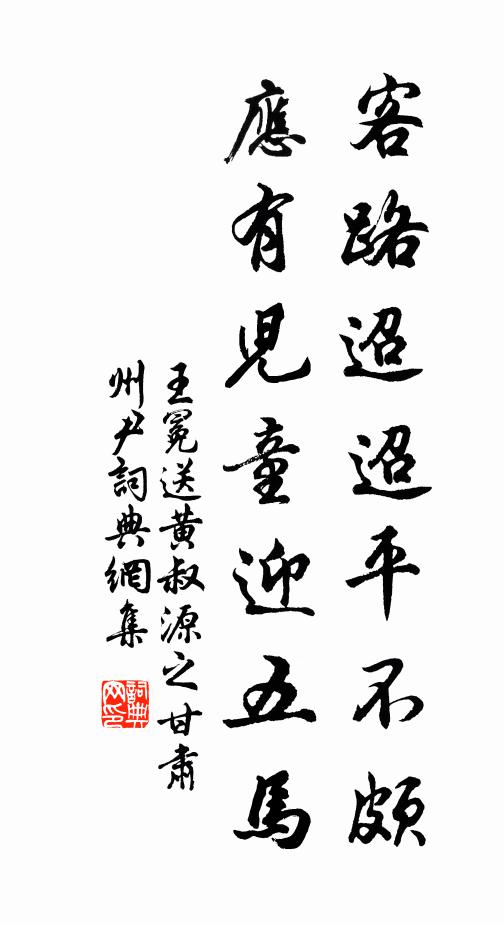 客路迢迢平不頗
應有兒童迎五馬
王冕送黄叔源之甘肅
州尹詞典網集
詞典网印